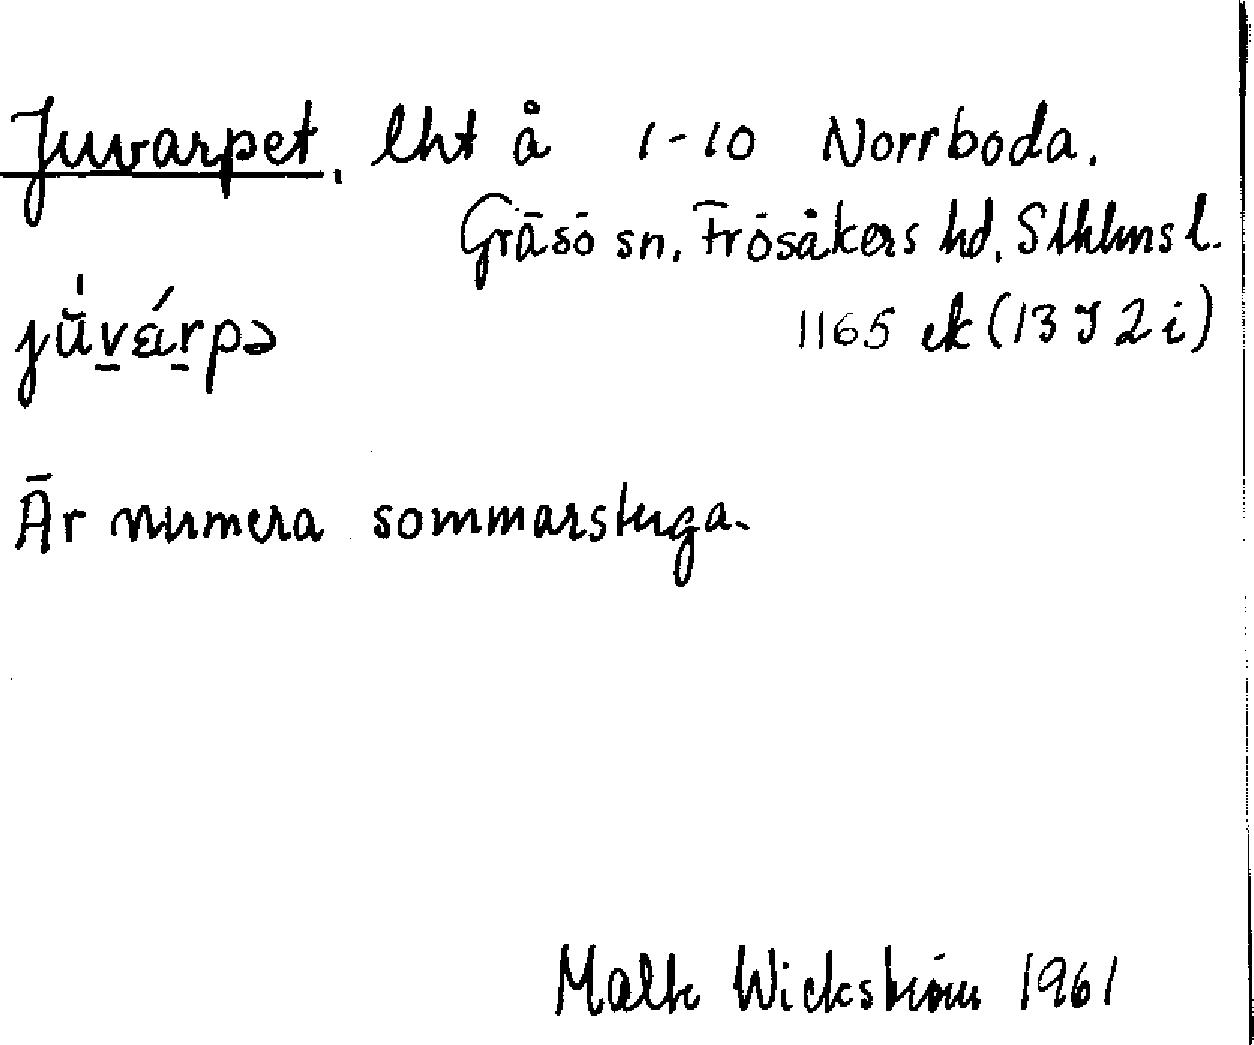 Juvarpet, lht å 1-10 Norrboda.
Gräsö sn, Frösåkers hd, Sthlms l.
jŭ́v̠ɛár̠pə 1165 ek (13 I 2 i)
Är numera sommarstuga.
Malte Wickström 1961